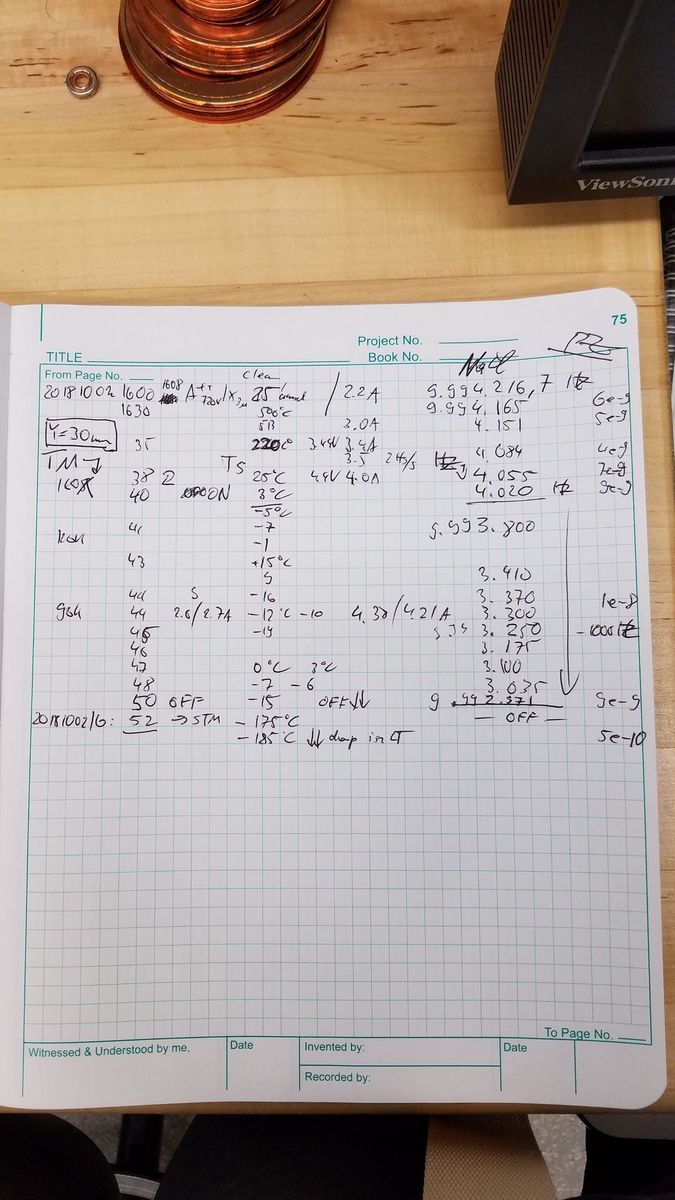 ViewSoni
75
Project No.
TITLE
Book No.
From Page No.
Clean
NaCl
20181002 1600 1608 A++ 25 / 2.2A 9.994.216,7 Hz 6e-9
1630 500°C 9.994.165 5e-9
3.0A 4.151
Y=30mm 35 220°C 3.4A 4.084 4e-9
TM TS 3.5 Hz 7e-9
38 25°C 4.0A 4.055
40 ON 3°C 4.020 Hz 9e-9
-5°C
41 -7 9.993.800
-1
43 +15°C
9 3.410
44 S -16 3.370 1e-8
44 2.6/2.7A -12°C -10 4.30/4.21A 3.300
45 -19 3.250 -1000Hz
46 3.175
47 0°C 3°C 3.100
48 -7 -6 3.035
50 OFF -15 OFF↓↓ 9.992.971 9e-9
20181002/6: 52 →STM -175°C — OFF —
-185°C ↓↓ drop in CT 5e-10
To Page No.
Witnessed & Understood by me,
Date
Invented by:
Date
Recorded by: